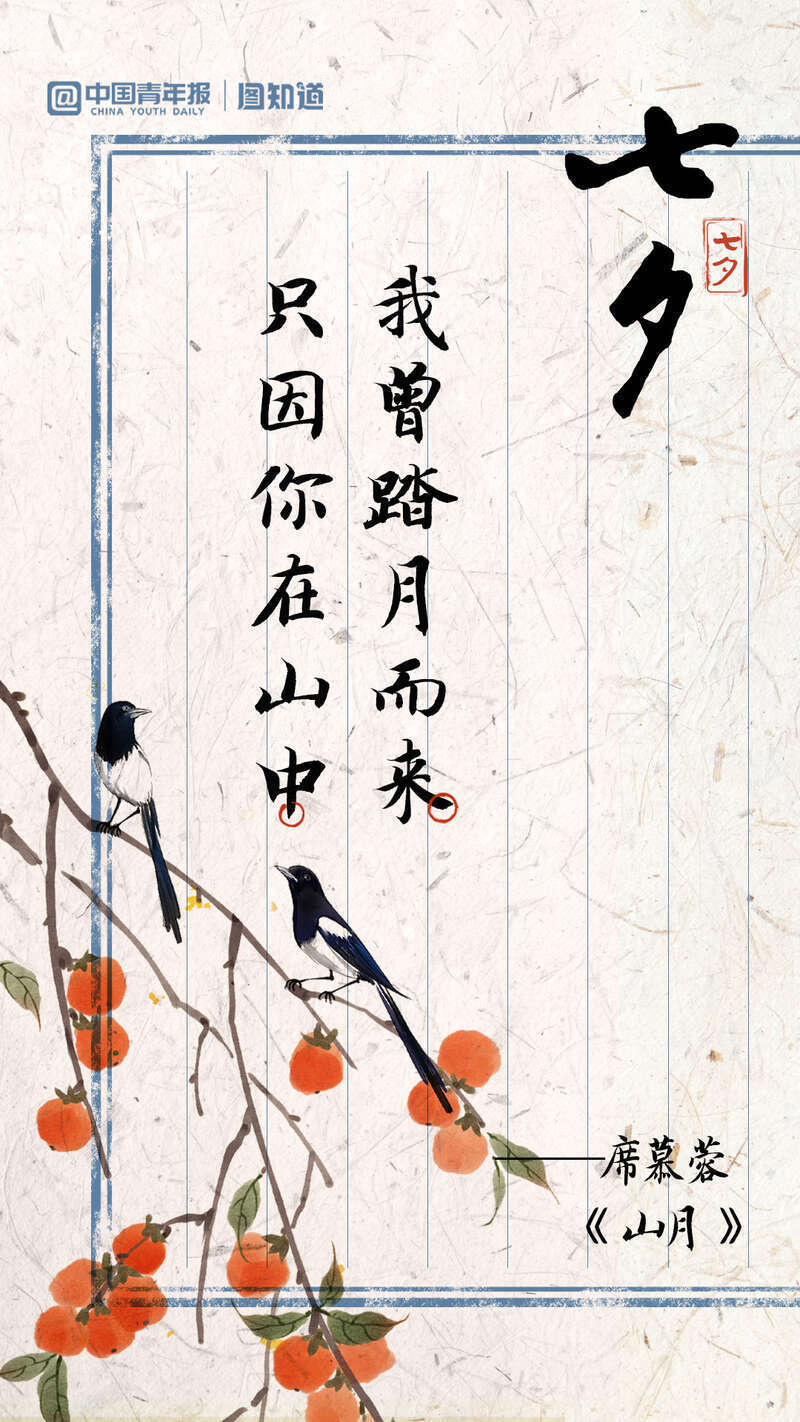 @中国青年报 图知道
CHINA YOUTH DAILY
七夕
七夕
我曾踏月而来
只因你在山中
——席慕蓉
《山月》